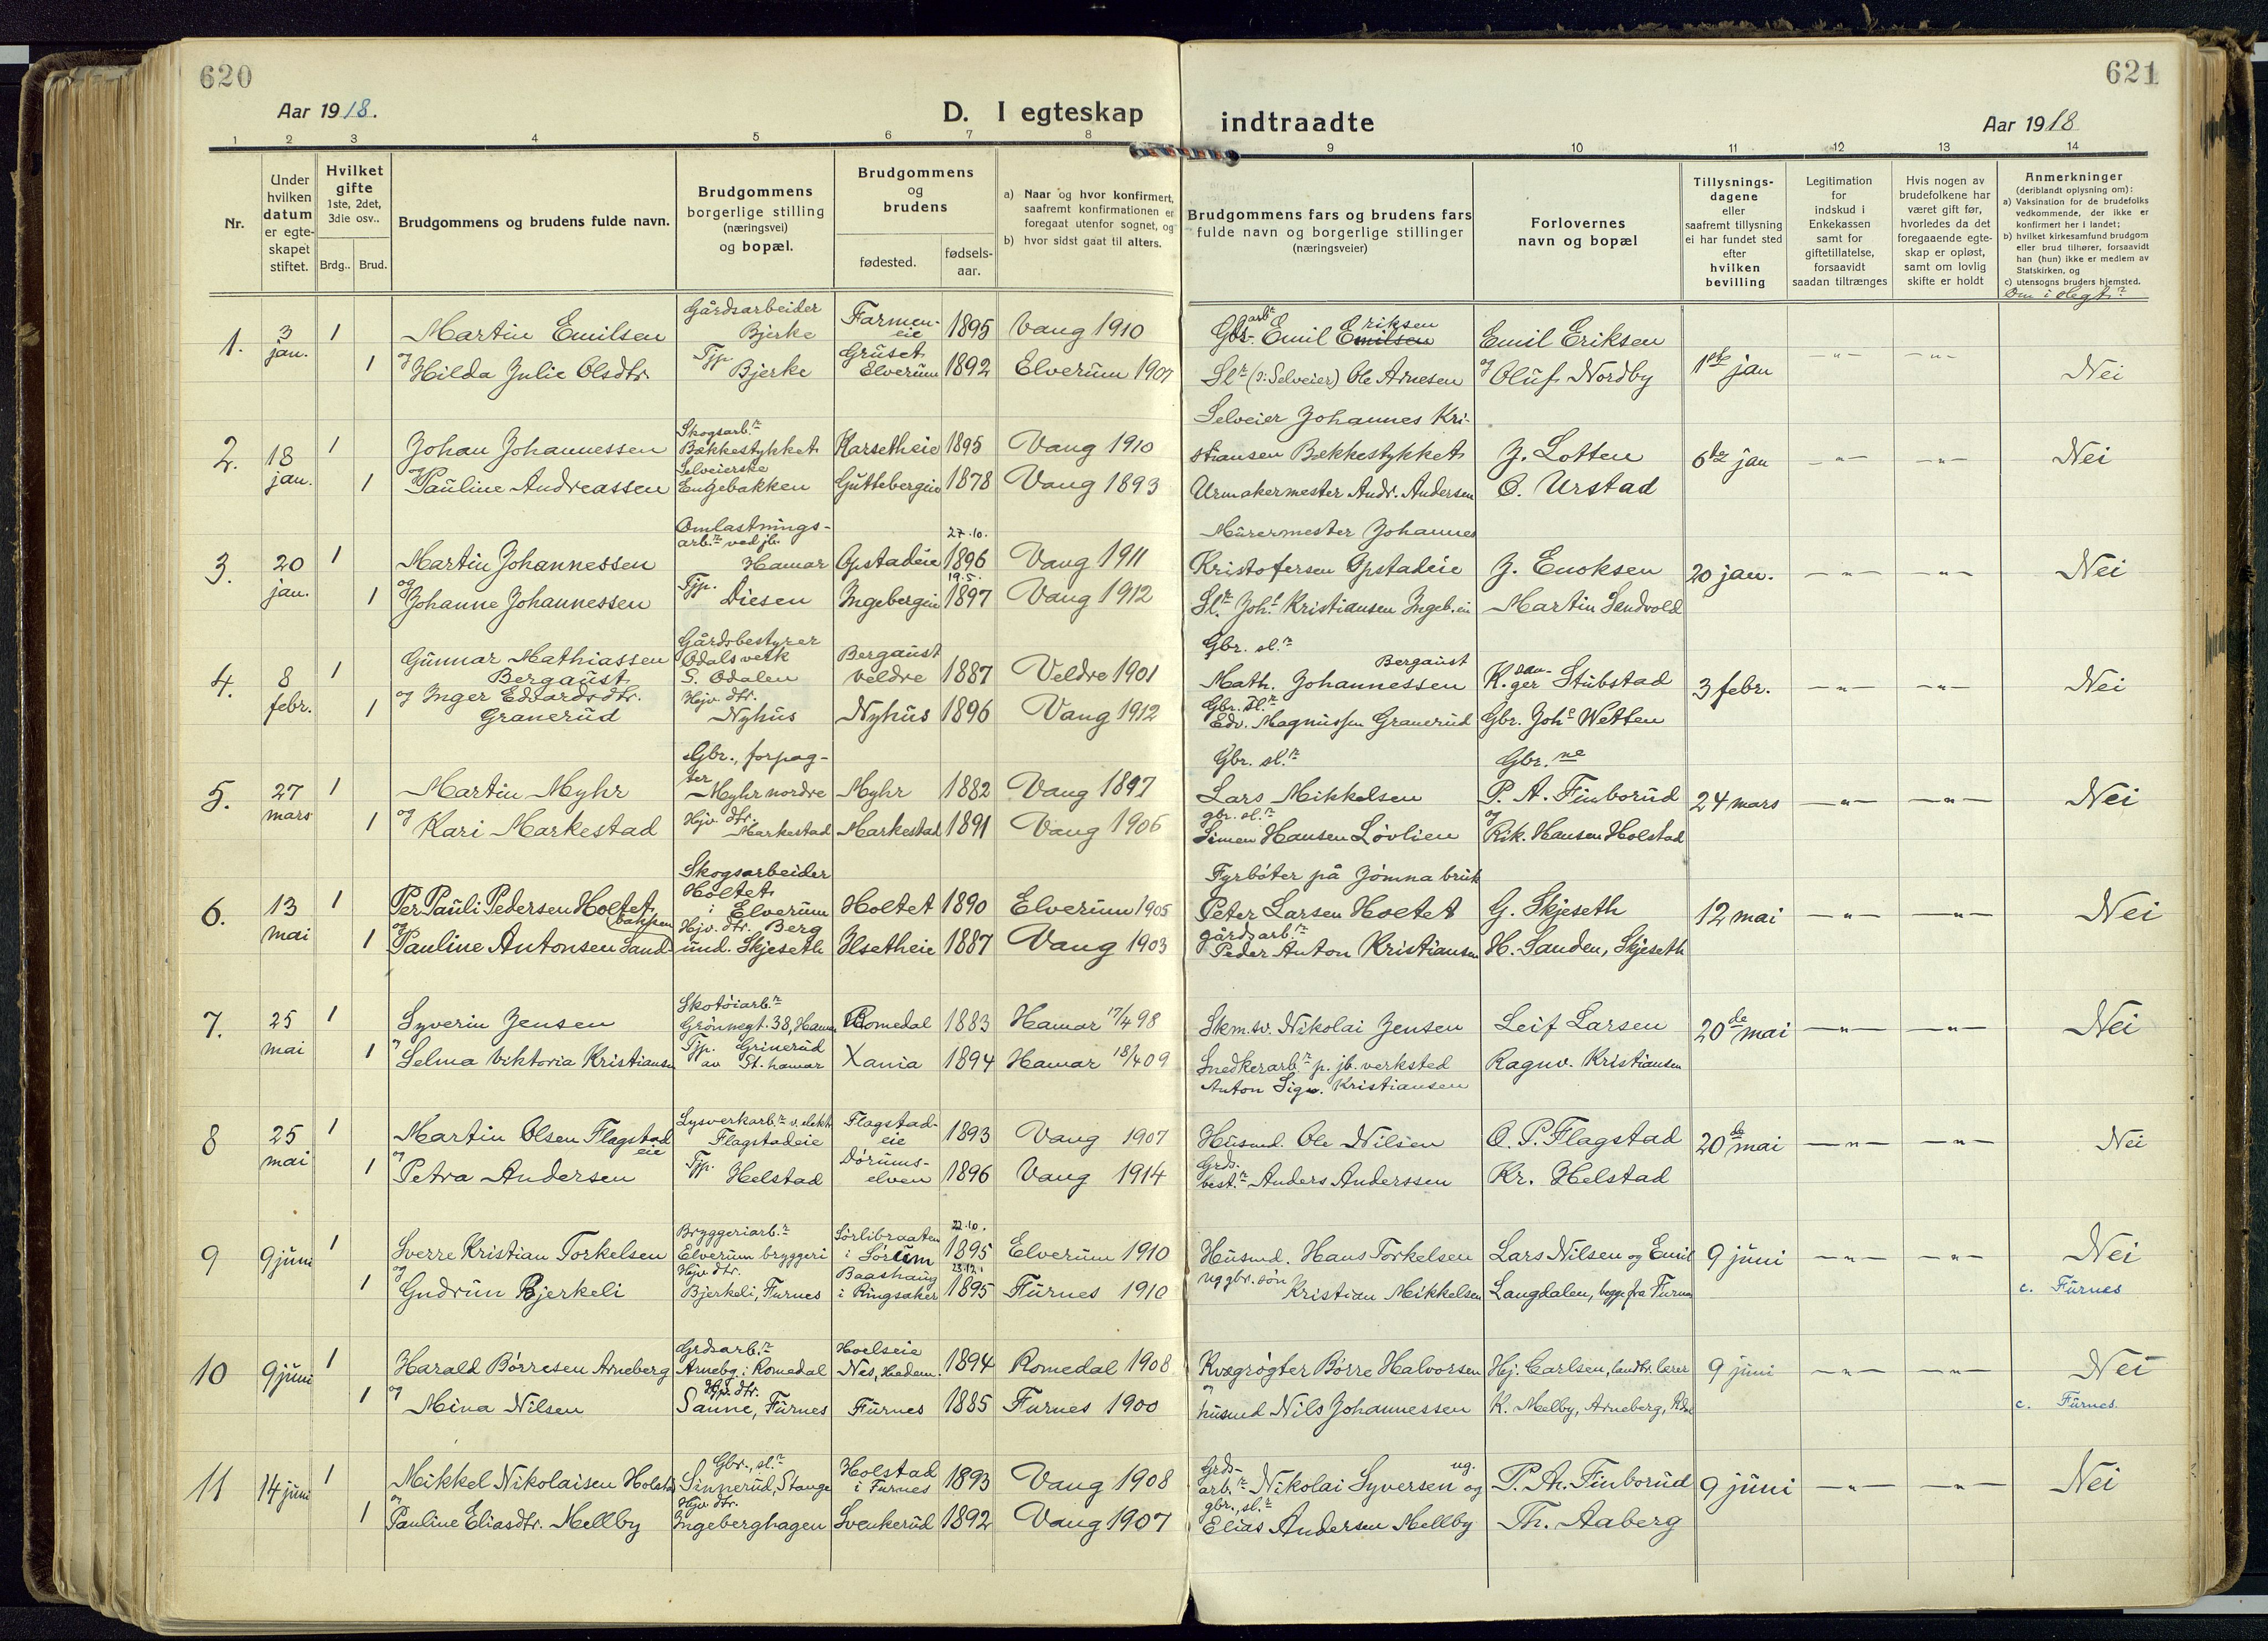 620
621
Aar 1918.
D. I egteskap
indtraadte
Aar 1918
1 2 3 4 5 6 7 8 9 10 11 12 13 14
Nr.
Under hvilken datum er egte-skapet stiftet.
Hvilket gifte 1ste, 2det, 3die osv..
Brdg.. Brud.
Brudgommens og brudens fulde navn.
Brudgommens borgerlige stilling (næringsvei) og bopæl.
Brudgommens og brudens
fødested.
fødsels-aar.
a) Naar og hvor konfirmert, saafremt konfirmationen er foregaat utenfor sognet, og
b) hvor sidst gaat til alters.
Brudgommens fars og brudens fars fulde navn og borgerlige stillinger (næringsveier)
Forlovernes navn og bopæl
Tillysnings-dagene eller saafremt tillysning ei har fundet sted efter hvilken bevilling
Legitimation for indskud i Enkekassen samt for giftetillatelse, forsaavidt saadan tiltrænges
Hvis nogen av brudefolkene har været gift før, hvorledes da det foregaaende egte-skap er opløst, samt om lovlig skifte er holdt
Anmerkninger (deriblandt oplysning om):
a) Vaksination for de brudefolks vedkommende, der ikke er konfirmert her i landet;
b) hvilket kirkesamfund brudgom eller brud tilhører, forsaavidt han (hun) ikke er medlem av Statskirken, og
c) utensogns bruders hjemsted.
Om i slegt?
1. 3 jan. 1 Martin Emilsen Gårdsarbeider Bjerke Farmen-eie 1895 Vang 1910 Emil Emilsen Eriksen Emil Eriksen 1ste jan -"- -"- Nei
1 og Hilda Julie Olsdtr. Tjp. Bjerke Grüset Elverum 1892 Elverum 1907 Slr (ɔ: Selveier) Ole Arnesen og Oluf Nordby
2. 18 jan. 1 Johan Johannessen Skogsarb.r Bækkestykket Karsetheie 1895 Vang 1910 Selveier Johannes Kristiansen Bækkestykket J. Lotten 6te jan -"- -"- Nei
1 og Pauline Andreassen Selveierske Engebakken Guttebergeie 1878 Vang 1893 Urmakermester Andr. Andersen O. Urstad
3. 20 jan. 1 Martin Johannessen Omlastnings-arb.r ved jb. Hamar Opstadeie 27.10. 1896 Vang 1911 Mürermester Johannes Kristofersen Opstadeie J. Enoksen 20 jan. -"- -"- Nei
1 og Johanne Johannessen Tjp. Diesen Ingebergeie 19.5. 1897 Vang 1912 Slr. Johs Kristiansen Ingeb.ei Martin Sandvold
4. 8 febr. 1 Gunnar Mathiassen Bergaust Gårdsbestyrer Odalsverk S. Odalen Bergaust Veldre 1887 Veldre 1901 Gbr. sl.r Math. Johannessen Bergaust K. Stubstad 3 febr. -"- -"- Nei
1 og Inger Edvardsdtr. Granerud Hjv. dtr. Nyhus Nyhus 1896 Vang 1912 Gbr. sl.r Edv. Magnussen Granerud Gbr. Johs Wetten
5. 27 mars 1 Martin Myhr Gbr., forpagter Myhr nordre Myhr 1882 Vang 1897 Gbr. sl.r Lars Mikkelsen Gbr.ne P. A. Finborud 24 mars -"- -"- Nei
1 og Kari Markestad Hjv. dtr. Markestad Markestad 1891 Vang 1906 gbr. sl.r Simen Hansen Løvlien og Rik. Hansen Holstad
6. 13 mai 1 Per Pauli Pedersen Holtet Skogsarbeider Holtet i Elverum Holtet 1890 Elverum 1905 Fyrbøter på Jømna brük Peter Larsen Holtet G. Skjeseth 12 mai -"- -"- Nei
1 og Pauline Antonsen Sandbakken Hjv. dtr. Berg und. Skjeseth Ilsetheie 1887 Vang 1903 gårdsarb.r Peder Anton Kristiansen H. Sanden, Skjeseth
7. 25 mai 1 Syverin Jensen Skotøiarb.r Grønnegt. 38, Hamar Romedal 1883 Hamar 17/4 98 Skm.sv. Nikolai Jensen Leif Larsen 20de mai -"- -"- Nei
1 Selma Viktoria Kristiansen Tjp. Grinerud av St. hamar Xania 1894 Hamar 18/4 09 Snedkerarb.r p. jb. verksted Anton Sigv. Kristiansen Ragnv. Kristiansen
8 25 mai 1 Martin Olsen Flagstadeie Lysverkarb.r v. elekt Flagstadeie Flagstad-eie 1893 Vang 1907 Husmd. Ole Nilsen O. P. Flagstad 20de mai -"- -"- Nei
1 og Petra Andersen Tjp. Helstad Dørums-elven 1896 Vang 1914 Grds. best.r Anders Anderssen Kr. Helstad
9 9 juni 1 Sverre Kristian Torkelsen Bryggeriarb.r Elverum bryggeri Sørlibraaten i Sørum 22.10. 1895 Elverum 1910 Husmd. Hans Torkelsen Lars Nilsen og Emil 9 juni -"- -"- Nei
1 og Gudrun Bjerkeli Hjv. dtr. Bjerkeli, Furnes Baashaug i Ringsaker 23.12. 1895 Furnes 1910 ug gbr. søn Kristian Mikkelsen Langdalen, begge fra Furnes c. Furnes
10 9 juni 1 Harald Børresen Arneberg Grdsarb.r Arnebg. i Romedal Hoelseie Nes, Hedem. 1894 Romedal 1908 Kvægrøgter Børre Halvorsen Hj. Carlsen, landbr. lærer 9 juni -"- -"- Nei
1 og Mina Nilsen Hjv. dtr. Sanne, Furnes Furnes 1885 Furnes 1900 husmd Nils Johannessen K. Melby, Arneberg, c. Furnes.
11 14 juni 1 Mikkel Nikolaisen Holstad Gbr., sl.r Sinnerud, Stange Holstad i Furnes 1893 Vang 1908 Grds-arb.r Nikolai Syversen ug. og P. A. Finborud 9 juni -"- -"- Nei
1 og Pauline Eliasdtr. Mellby Hjv. dtr. Ingeberghagen Svenkerud 1892 Vang 1907 gbr., sl.r Elias Andersen Mellby Th. Aaberg